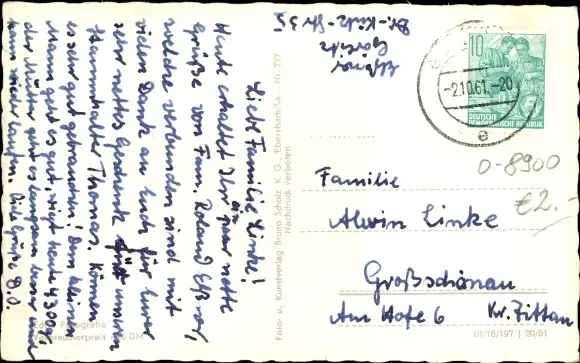 Liebe Familie Linke!
Heute erhaltet Ihr ein paar nette
Grüße von Fam. Roland Elßner,
welche verbunden sind mit
vielen Dank an Euch für Euer
sehr nettes Geschenk für unseren
Stammhalter Thomas. Können
es sehr gut gebrauchen! Dem kleinen
Mann geht es gut, wiegt heute 4300g.
der Mutter geht es langsam besser und
kann wieder laufen. Viele Grüße
Elßner
Görlitz
Dr.-Kahlbaum
Str. 35
10
DEUTSCHE
DEMOKRATISCHE REPUBLIK
-2.10.61.-20
e
0-8900
€2.-
Familie
Alwin Linke
Großschönau
Am Hofe 6 Kr. Zittau
III/18/197 | 20/61
Foto- u. Kunstverlag Bruno Scholz K. G., Ebersbach/Sa. Nr. 717
Nachdruck verboten
Echte Fotografie
Verbraucherpreis DM